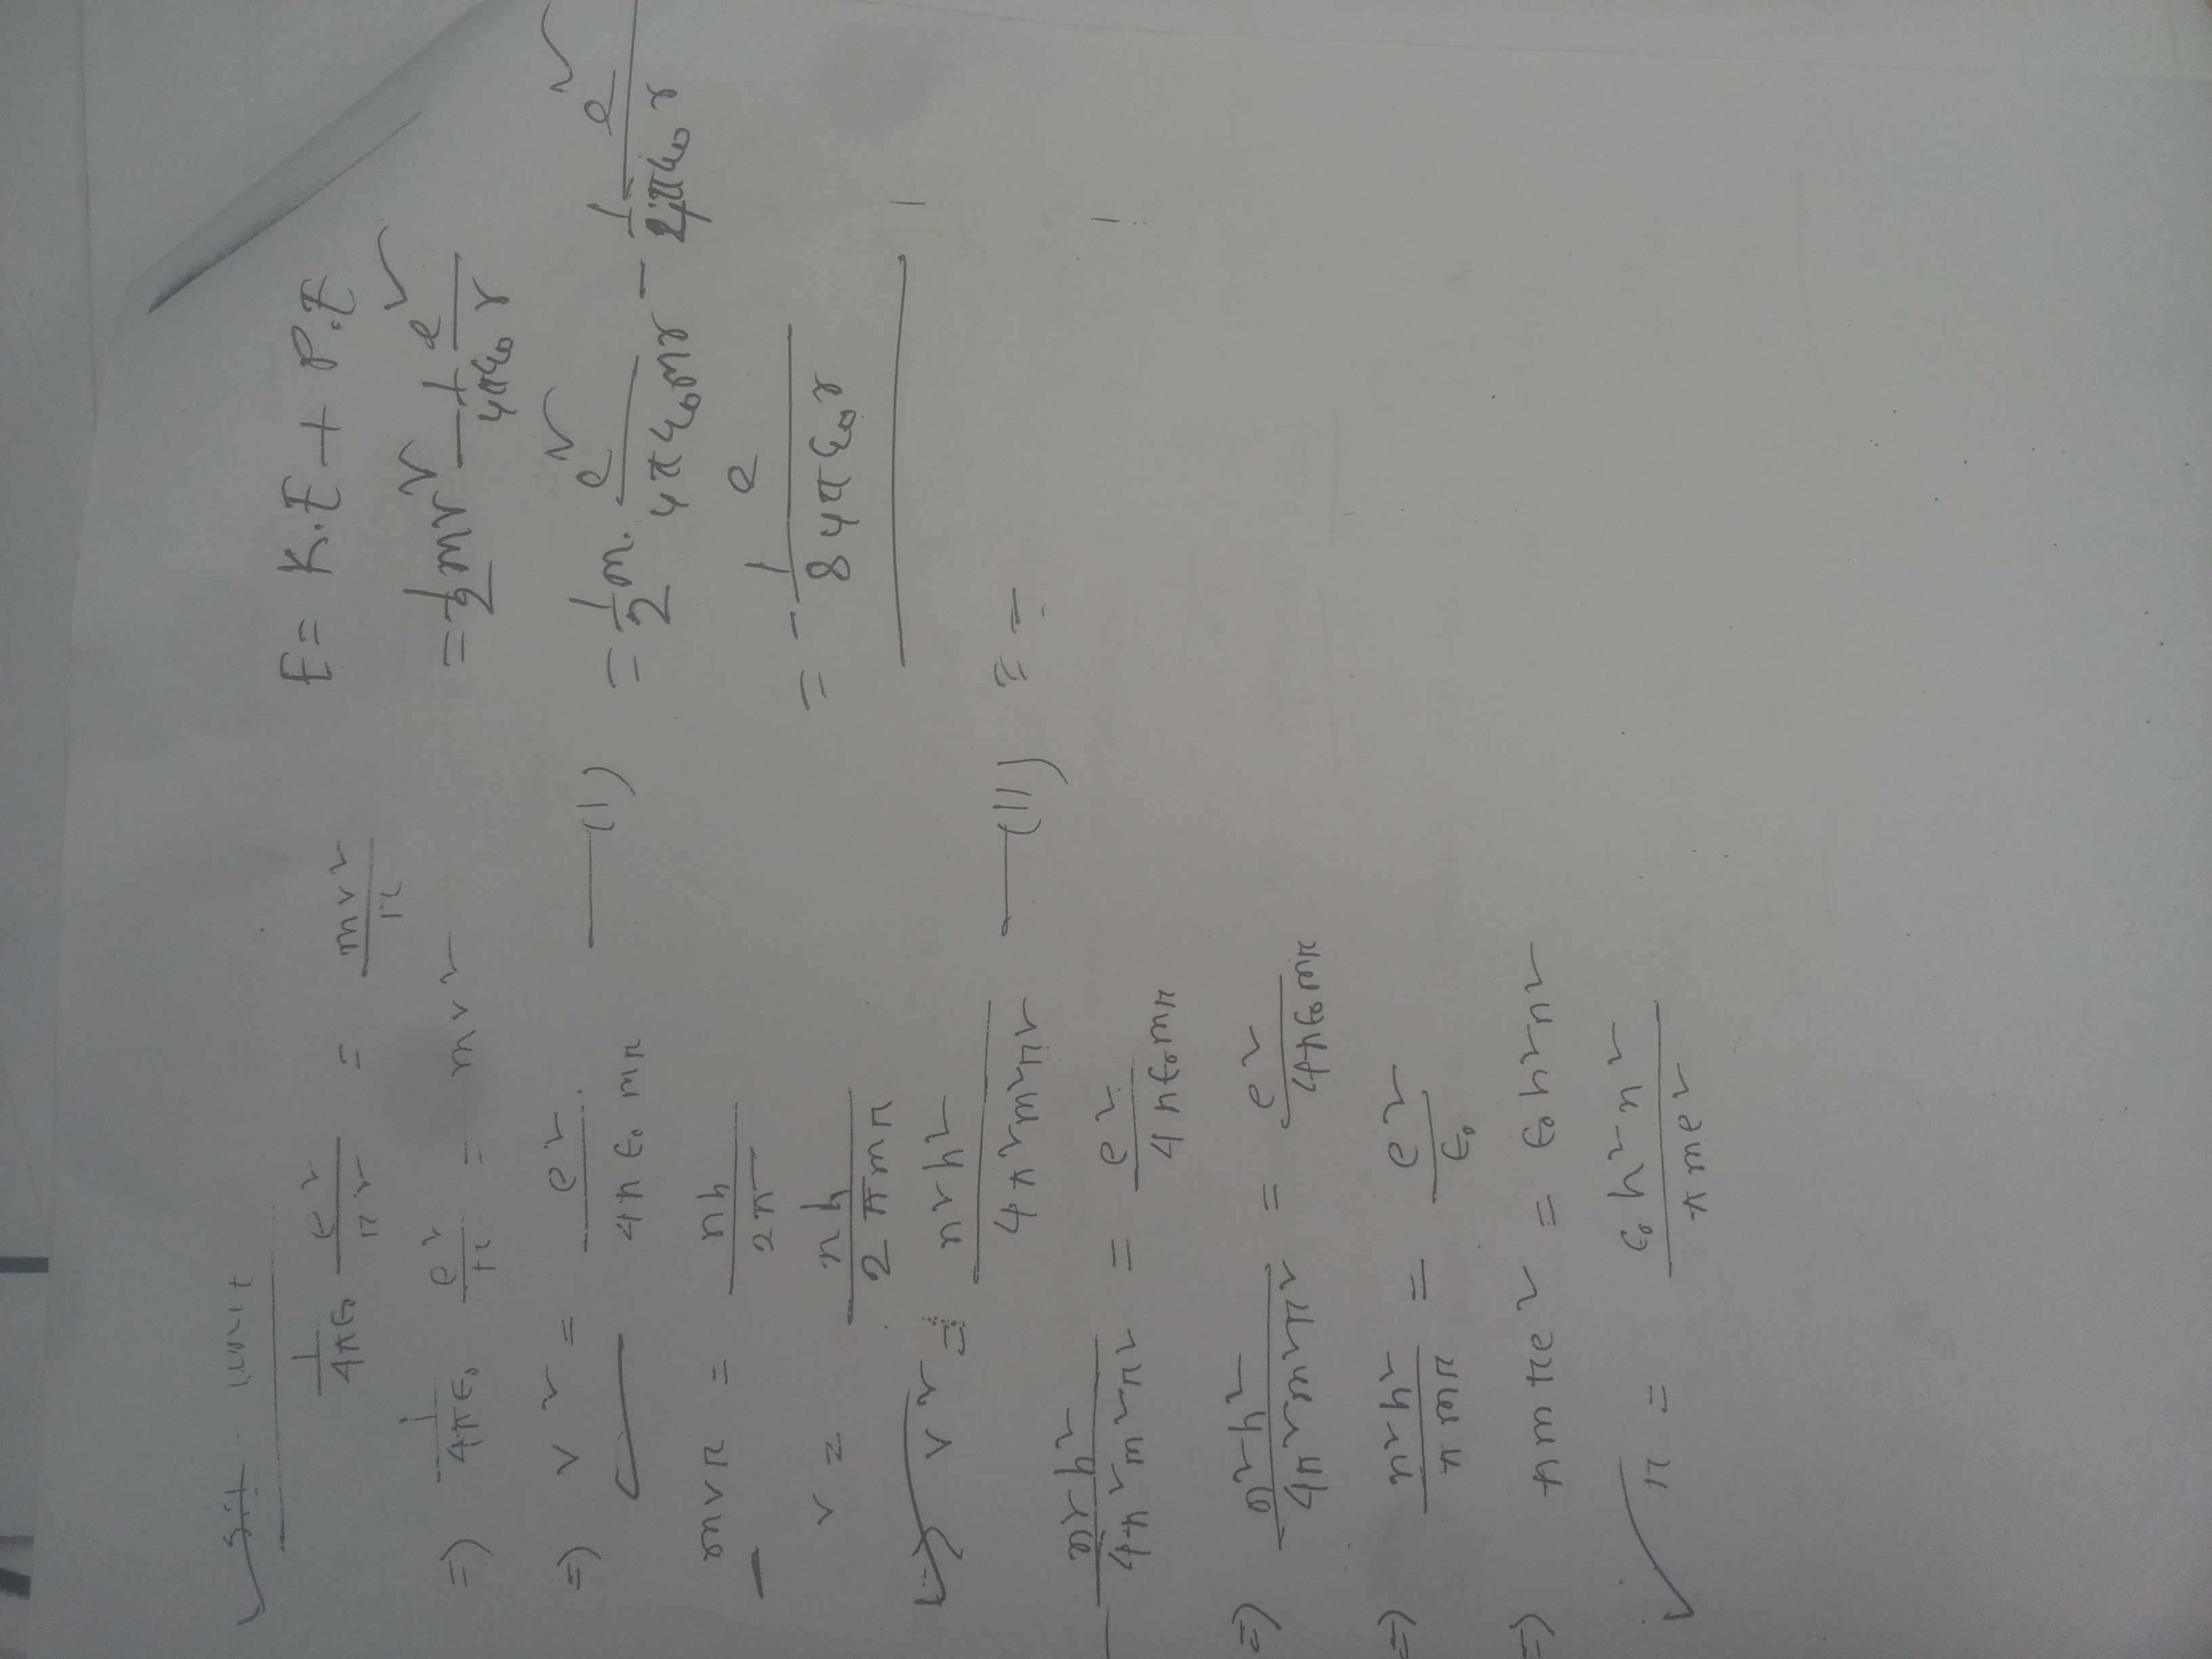 S.I. unit
1/4πε₀ e²/r² = mv²/r
=> 1/4πε₀ e²/r = mv²
=> v² = e²/4πε₀mr —(I)
mvr = nh/2π
v = nh/2πmr
=> v² = n²h²/4π²m²r² —(II)
n²h²/4π²m²r² = e²/4πε₀mr
=> n²h²/4π²m²r² = e²/4πε₀mr
=> n²h²/πmr = e²/ε₀
=> πmre² = ε₀h²n²
r = ε₀h²n²/πme²
E = K.E + P.E
= 1/2 mv² - 1/4πε₀ e²/r
= 1/2 m. e²/4πε₀mr - 1/4πε₀ e²/r
= - 1/8 e/4πε₀r
= -